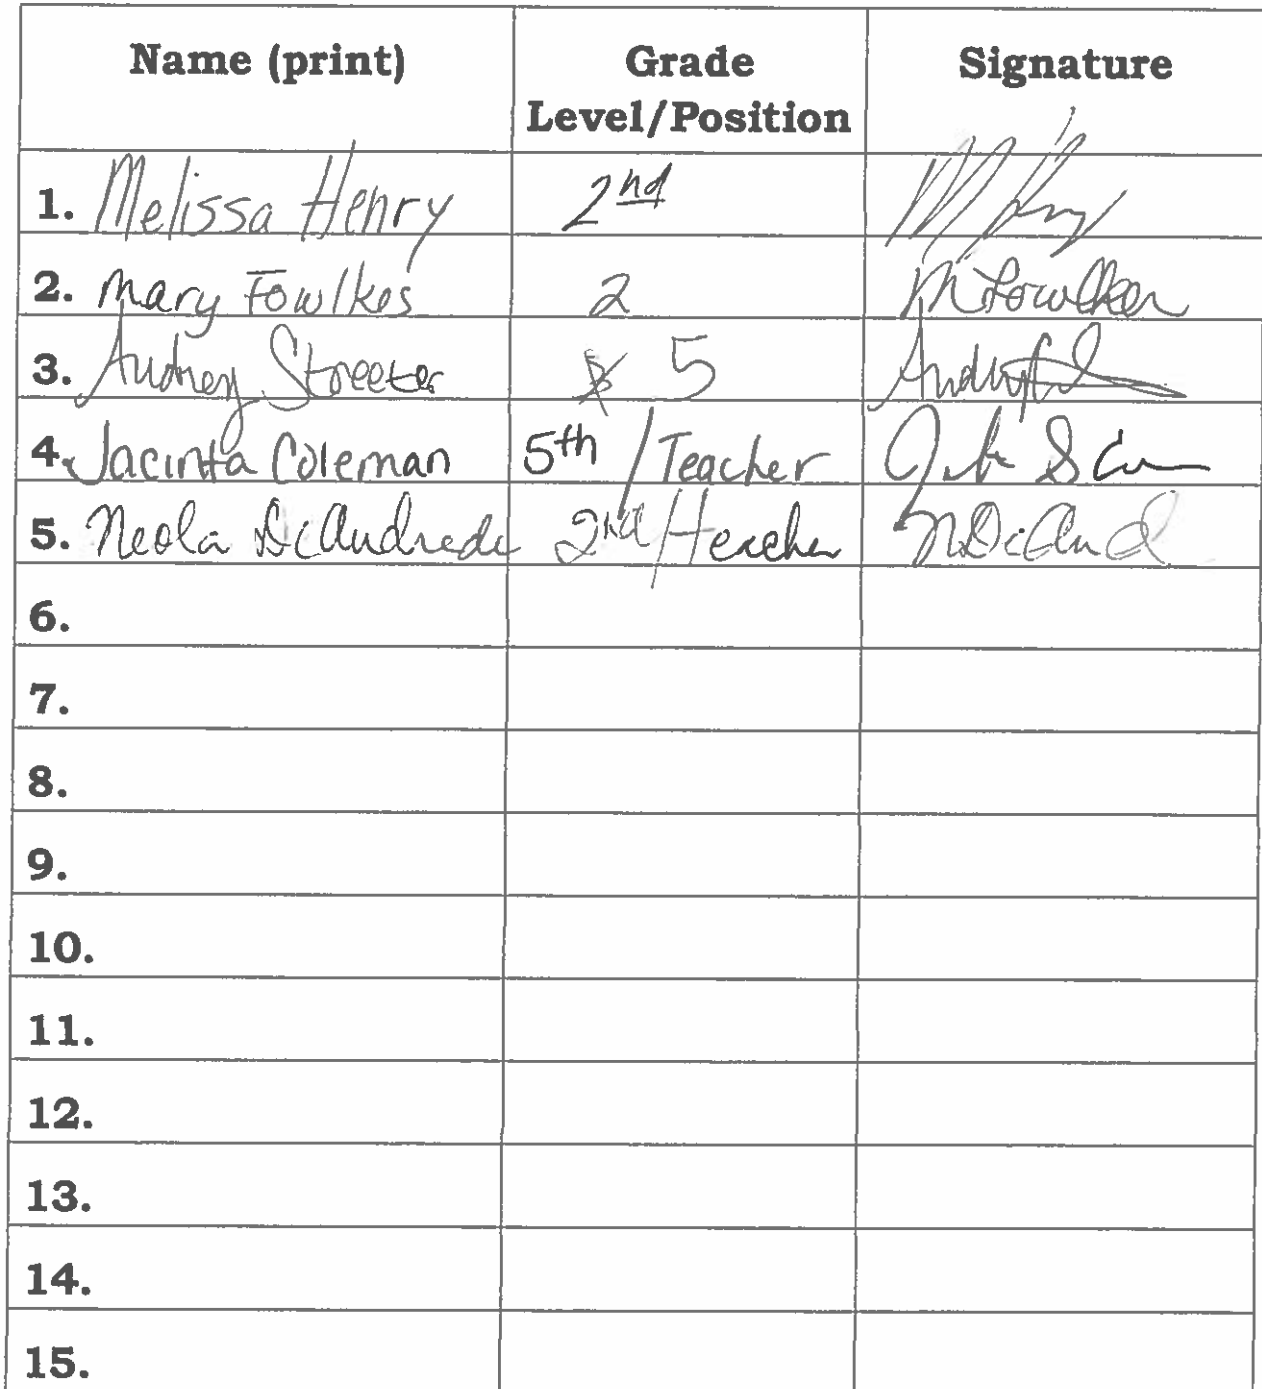 Name (print) Grade Level/Position Signature
1. Melissa Henry 2nd M Henry
2. Mary Fowlkes 2 M Fowlkes
3. Audrey Streeter 5
4. Jacinta Coleman 5th / Teacher
5. Neola DiAndrade 2nd / teacher
6.
7.
8.
9.
10.
11.
12.
13.
14.
15.